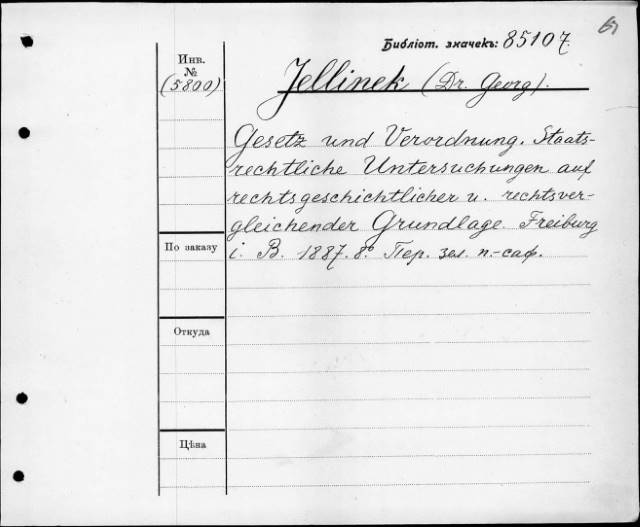 Библіот. значекъ: 85107.
Инв.
№
(5800)
Jellinek (Dr. Georg).
Gesetz und Verordnung. Staats-
rechtliche Untersuchungen auf
rechtsgeschichtlicher u. rechtsver-
gleichender Grundlage. Freiburg
i. B. 1887. 8º Пер. зел. п.-саф.
По заказу
Откуда
Цѣна